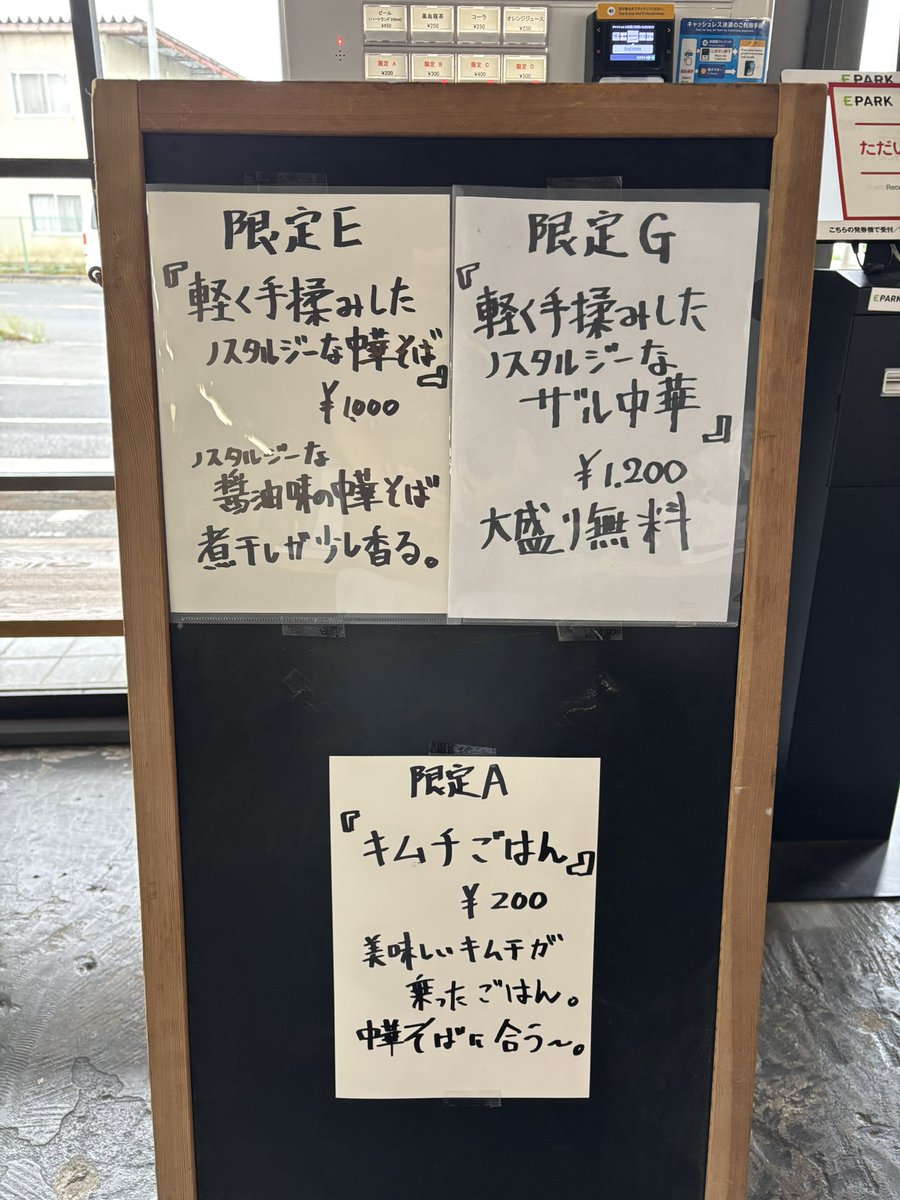 ビール
(ハートランド 330ml)
¥450
黒烏龍茶
¥250
コーラ
¥250
オレンジジュース
¥250
限定 A
¥200
限定 B
¥300
限定 C
¥400
限定 D
¥500
DISCOVER
キャッシュレス決済のご利用手順
EPARK
EPARK
ただい
こちらの発券機で受付/
EPARK
限定E
『軽く手揉みした
ノスタルジーな中華そば』
¥1,000
ノスタルジーな
醤油味の中華そば
煮干しが少し香る。
限定G
『軽く手揉みした
ノスタルジーな
ザル中華』
¥1,200
大盛り無料
限定A
『キムチごはん』
¥200
美味しいキムチが
乗ったごはん。
中華そばに合う〜。